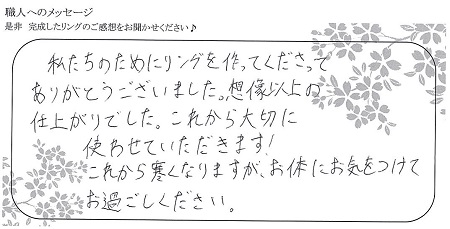 職人へのメッセージ
是非 完成したリングのご感想をお聞かせください♪
私たちのためにリングを作ってくださって
ありがとうございました。想像以上の
仕上がりでした。これから大切に
使わせていただきます!
これから寒くなりますが、お体にお気をつけて
お過ごしください。